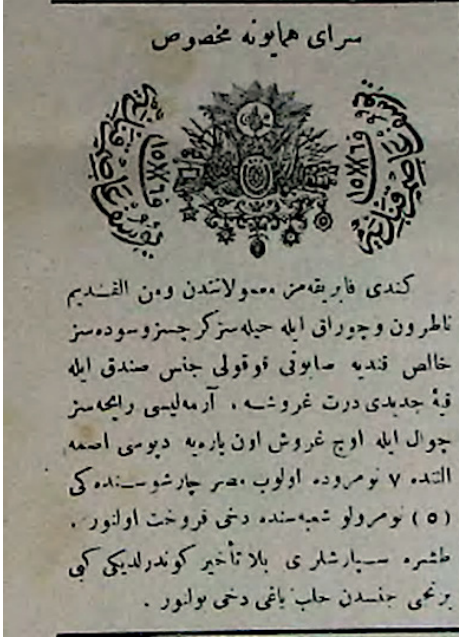 سرای همایونه مخصوص
كندی فابریقه‌مز معمولاتندن ومن القدیم
ناطرون وچوراق ایله حیله‌سز كرجسز وسوده‌سز
خالص قندیه صابونی قوقولی جنس صندق ایله
قیهٔ جدیدی درت غروشه ، آرمه‌لیسی رایحه‌سز
چوال ایله اوچ غروش اون پاره‌یه دپوسی اصمه
التنده ۷ نومروده اولوب مصر چارشوسنده‌كی
(٥) نومرولو شعبه‌سنده دخی فروخت اولنور .
طشره سپارشلری بلا تأخیر كوندرلدیكی كبی
برنجی جنسدن حلب یاغی دخی بولنور .